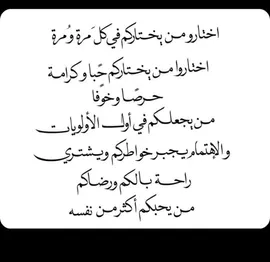 اختارو من يختاركم في كل َ مرة وُمرة
اختاروا من يختاركم حًبا وكرامة
حرصًا وخوفًا
من يجعلكم في أول الأولويات
والإهتمام يجبر خواطركم ويشتري
راحة بالكم ورضاكم
من يحبكم أكثر من نفسه